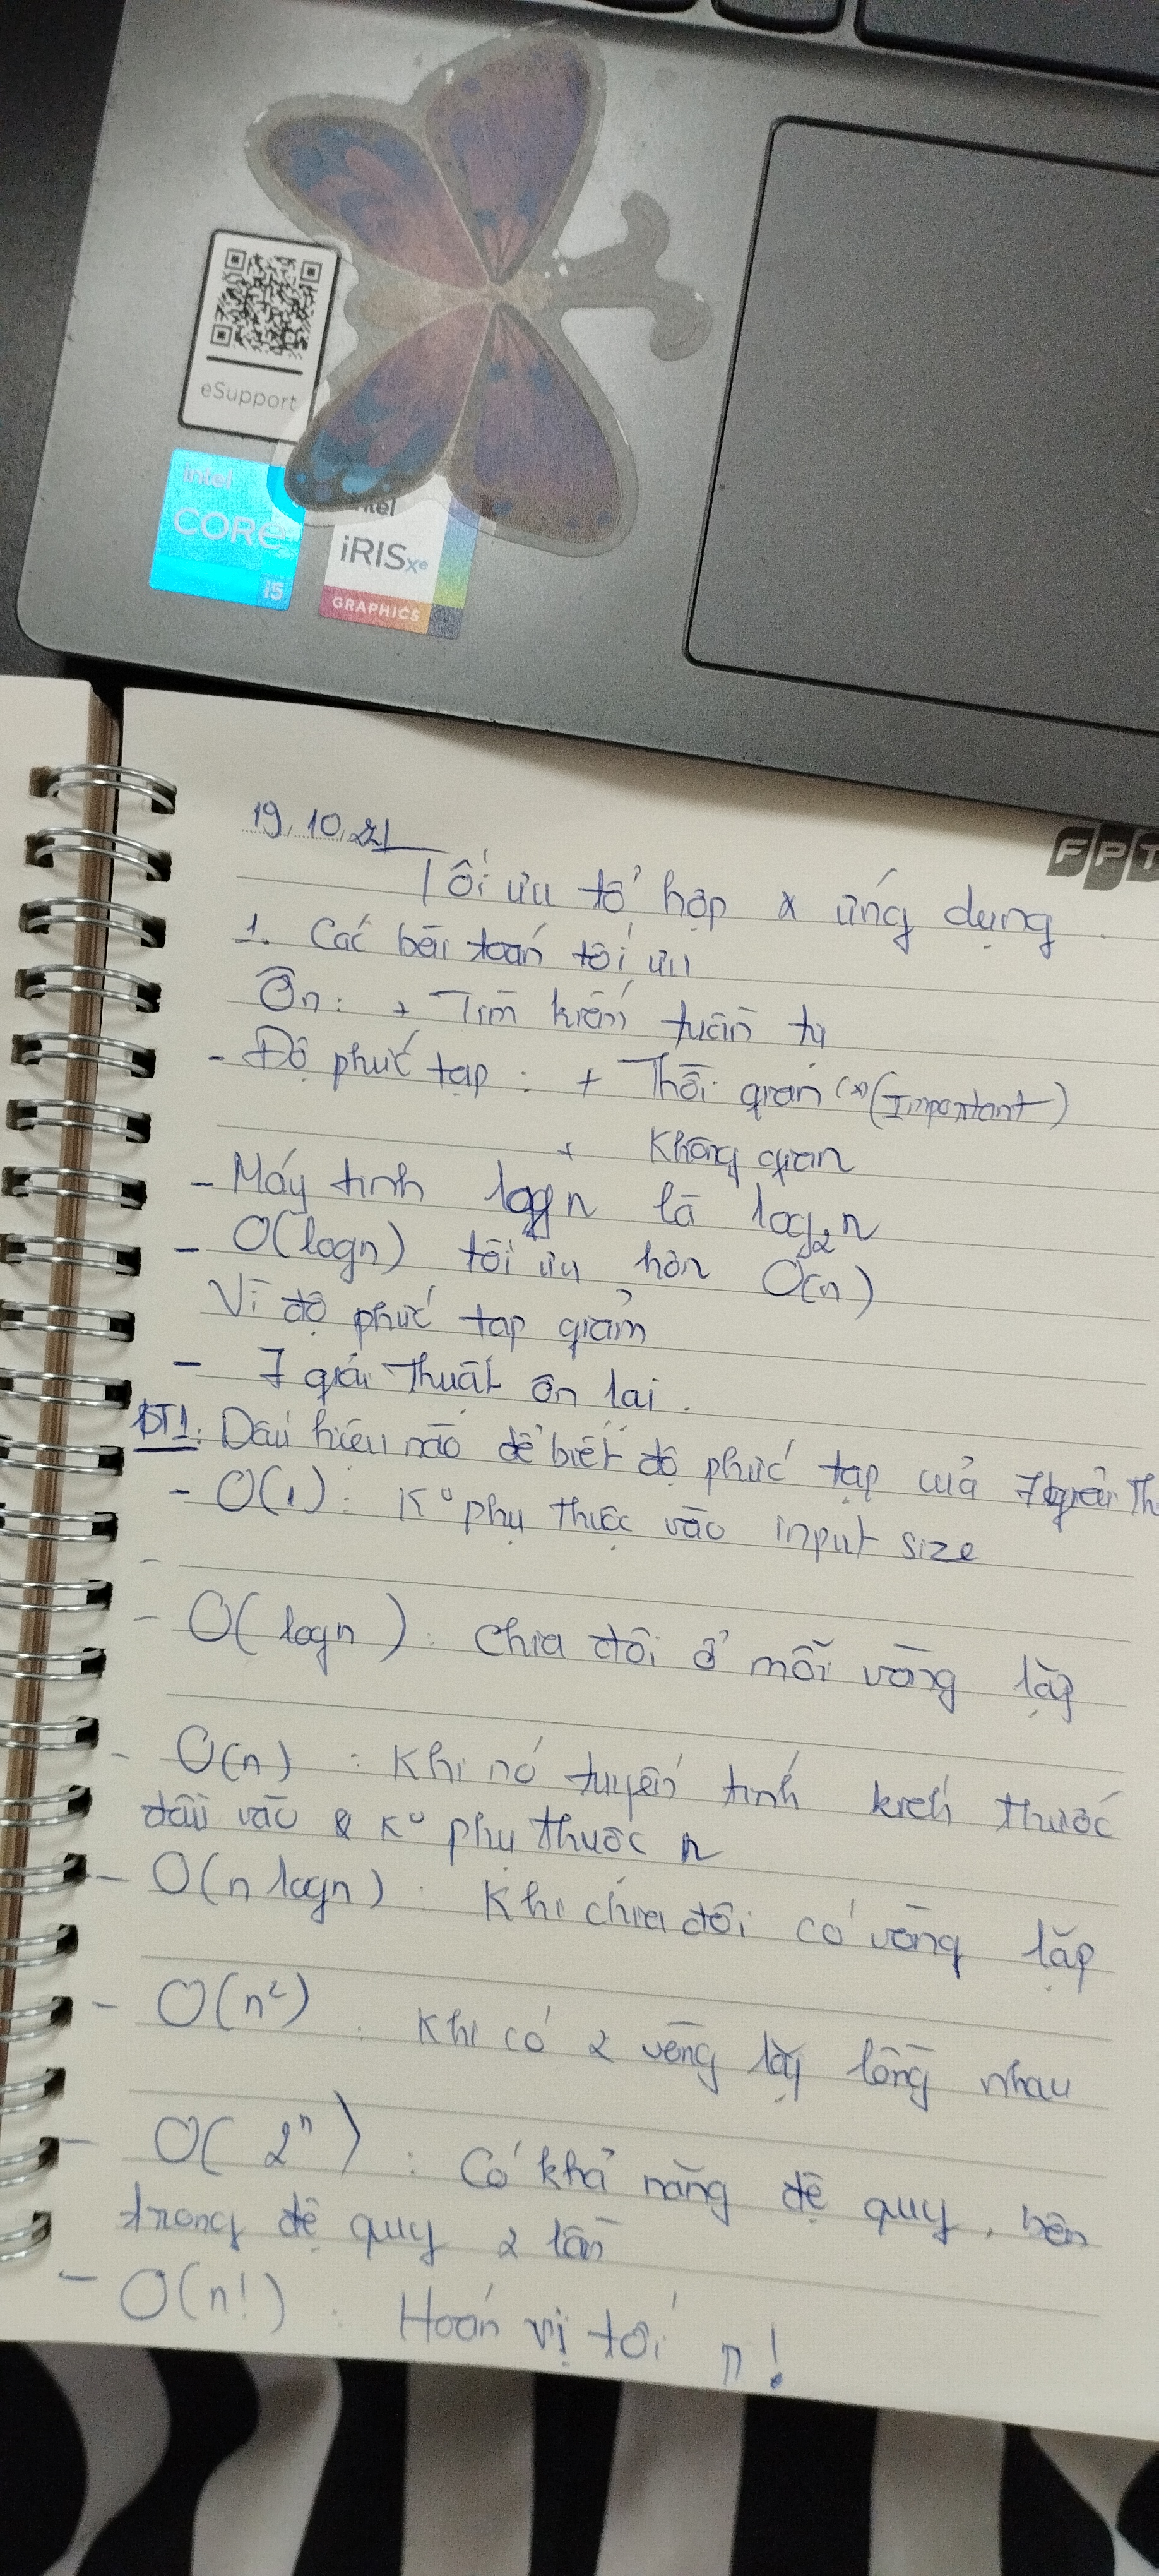 eSupport
intel
CORE
i5
intel
iRISxe
GRAPHICS
19.10.21
FPT
Tối ưu tổ hợp & ứng dụng
1. Các bài toán tối ưu
Ôn: + Tìm kiếm tuần tự
- Độ phức tạp: + Thời gian (*)(Important)
+ Không gian
- Máy tính logn là log₂n
- O(logn) tối ưu hơn O(n)
Vì độ phức tạp giảm
- 7 giải thuật ôn lại.
BT1: Dấu hiệu nào để biết độ phức tạp của 7 giải Th
- O(1): K° phụ thuộc vào input size
-
- O(logn): Chia đôi ở mỗi vòng lặp
- O(n): Khi nó tuyến tính kích thước
đầu vào & K° phụ thuộc n
- O(n logn): Khi chia đôi có vòng lặp
- O(n²): Khi có 2 vòng lặp lồng nhau
- O(2ⁿ): Có khả năng đệ quy, bên
trong đệ quy 2 lần
- O(n!): Hoán vị tới n!